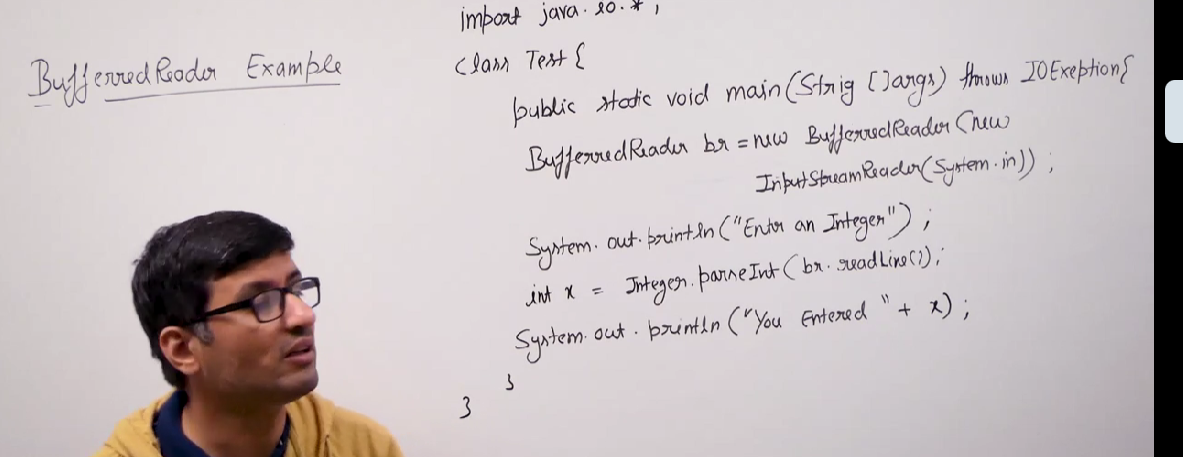 BufferredReader Example
import java.io.*;
class Test{
public static void main(Strig []args) throws IOExeption{
BufferredReader br = new BufferredReader(new
InputStreamReader(System.in));
System.out.println("Enter an Integer");
int x = Integer.parseInt(br.readLine());
System.out.println("You Entered "+ x);
}
}